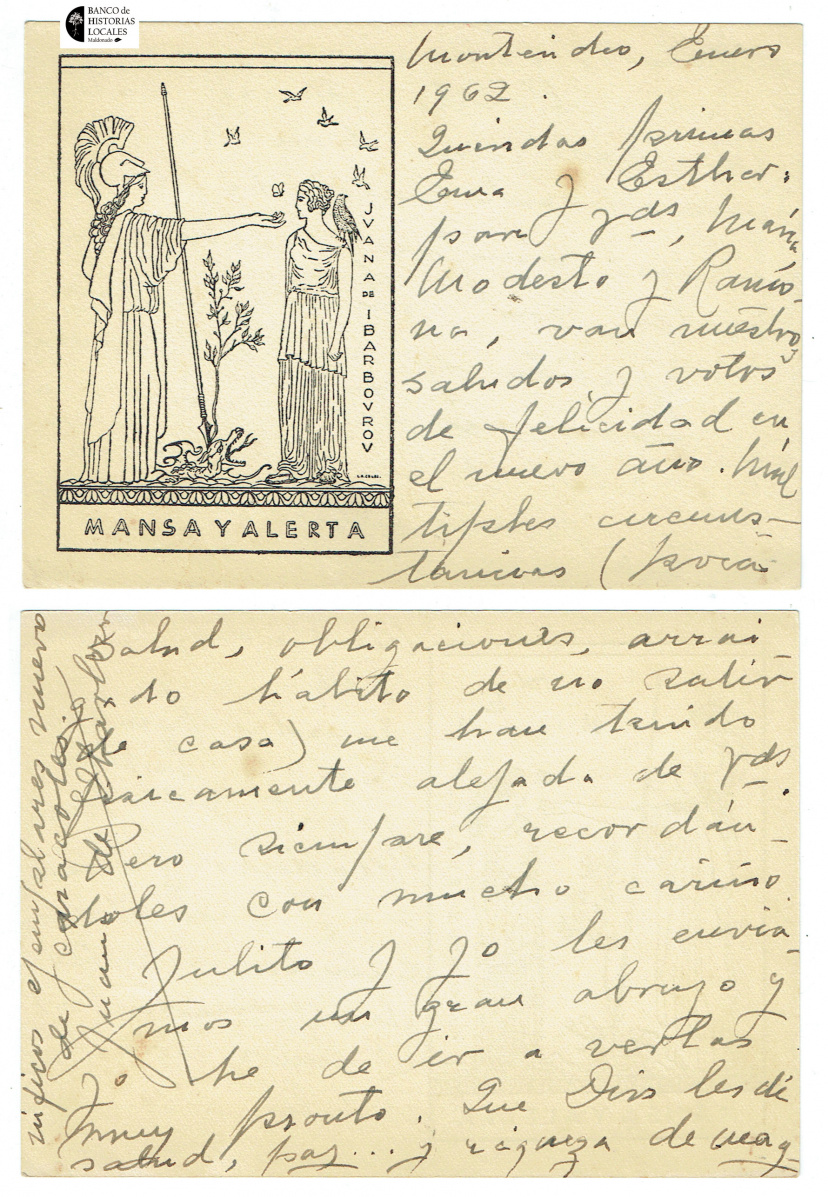 BANCO de
HISTORIAS
LOCALES
Maldonado
JVANA DE IBARBOVROV
MANSA Y ALERTA
Montevideo, Enero
1962.
Queridas primas
Ema y Esther:
para Vds, María,
Modesto y Ramo-
na, van nuestros
saludos y votos
de felicidad en
el nuevo año. Múl
tiples circuns-
tancias (poca
salud, obligaciones, arrai
do hábito de no salir
de casa) me han tenido
físicamente alejada de Vds.
Pero siempre, recordán-
doles con mucho cariño.
Julito y yo les envia-
mos un gran abrazo y
yo he de ir a verlas
muy pronto. Que Dios les dé
salud, paz... y riqueza de mag
níficos ejemplares nuevo
de caracoles.
Juana de Ibarbourou